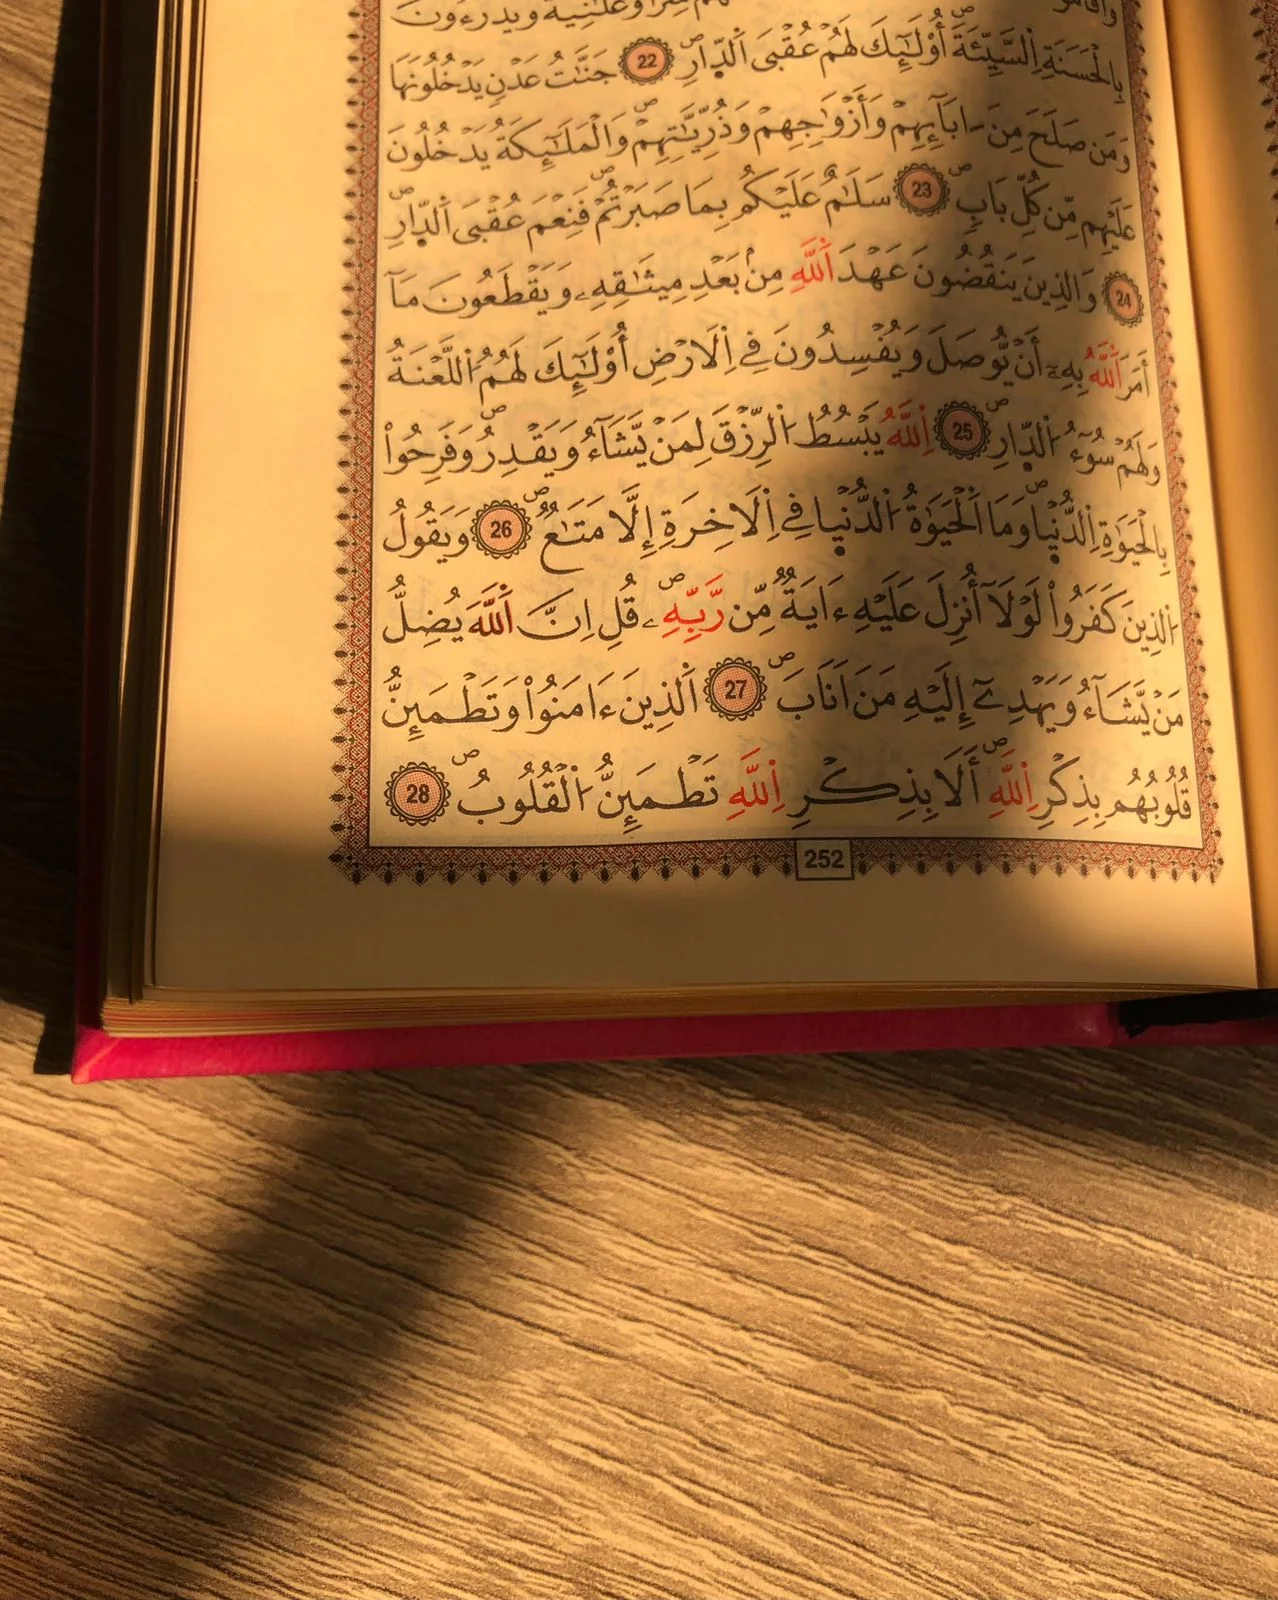 سِرّٗا وَعَلَٰنِيَةٗ وَيَدْرَءُونَ
بِالْحَسَنَةِ اِ۬لسَّيِّئَةَ أُوْلَٰٓئِكَ لَهُمْ عُقْبَى اَ۬لدّ۪ارِۖ 22 جَنَّٰتُ عَدْنٖ يَدْخُلُونَهَا
وَمَن صَلَحَ مِنَ اٰبَآئِهِمْ وَأَزْوَٰجِهِمْ وَذُرِّيَّٰتِهِمْۖ وَالْمَلَٰٓئِكَةُ يَدْخُلُونَ
عَلَيْهِم مِّن كُلِّ بَابٖۖ 23 سَلَٰمٌ عَلَيْكُم بِمَا صَبَرْتُمْۖ فَنِعْمَ عُقْبَى اَ۬لدّ۪ارِۖ
24 وَالذِينَ يَنقُضُونَ عَهْدَ اَ۬للَّهِ مِنۢ بَعْدِ مِيثَٰقِهِۦ وَيَقْطَعُونَ مَآ
أَمَرَ اَ۬للَّهُ بِهِۦٓ أَنْ يُّوصَلَ وَيُفْسِدُونَ فِے اِ۬لَارْضِ أُوْلَٰٓئِكَ لَهُمُ اُ۬للَّعْنَةُ
وَلَهُمْ سُوٓءُ اُ۬لدّ۪ارِۖ 25 اِ۬للَّهُ يَبْسُطُ اُ۬لرِّزْقَ لِمَنْ يَّشَآءُ وَيَقْدِرُۖ وَفَرِحُواْ
بِالْحَيَوٰةِ اِ۬لدُّنْي۪اۖ وَمَا اَ۬لْحَيَوٰةُ اُ۬لدُّنْي۪ا فِے اِ۬لَاخِرَةِ إِلَّا مَتَٰعٞۖ 26 وَيَقُولُ
اُ۬لذِينَ كَفَرُواْ لَوْلَآ أُنزِلَ عَلَيْهِ ءَايَةٞ مِّن رَّبِّهِۦۖ قُلِ اِنَّ اَ۬للَّهَ يُضِلُّ
مَنْ يَّشَآءُ وَيَهْدِےٓ إِلَيْهِ مَنَ اَنَابَۖ 27 اَ۬لذِينَ ءَامَنُواْ وَتَطْمَئِنُّ
قُلُوبُهُم بِذِكْرِ اِ۬للَّهِۖ أَلَا بِذِكْرِ اِ۬للَّهِ تَطْمَئِنُّ اُ۬لْقُلُوبُۖ 28
252